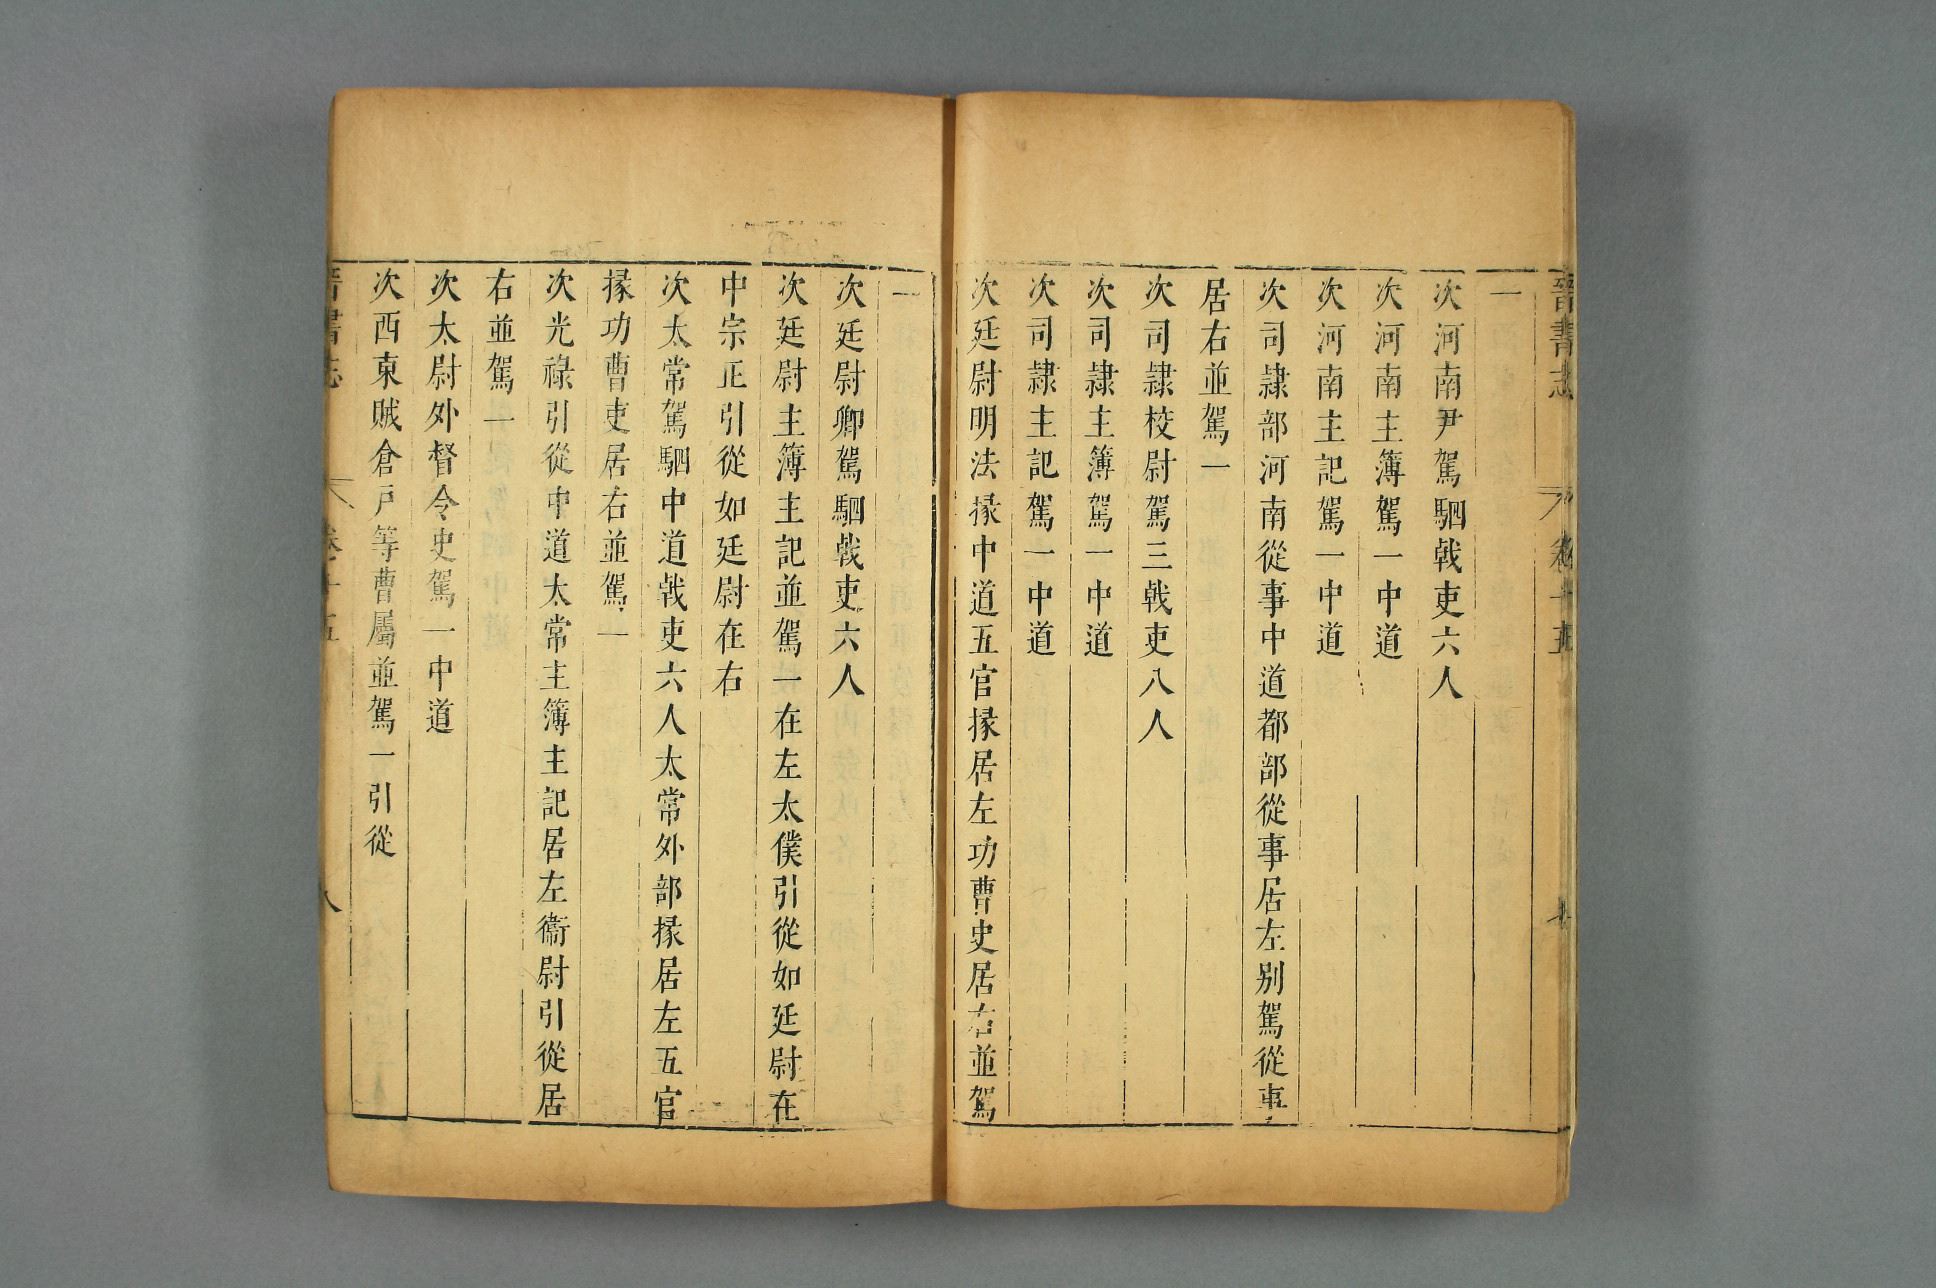 晉書志 卷十五 七
一
次河南尹駕駟戟吏六人
次河南主簿駕一中道
次河南主記駕一中道
次司隸部河南從事中道都部從事居左别駕從事
居右並駕一
次司隸校尉駕三戟吏八人
次司隸主簿駕一中道
次司隸主記駕一中道
次廷尉明法掾中道五官掾居左功曹史居右並駕
一
次廷尉卿駕駟戟吏六人
次廷尉主簿主記並駕一在左太僕引從如廷尉在
中宗正引從如廷尉在右
次太常駕駟中道戟吏六人太常外部掾居左五官
掾功曹吏居右並駕一
次光祿引從中道太常主簿主記居左衞尉引從居
右並駕一
次太尉外督令史駕一中道
次西東賊倉戸等曹屬並駕一引從
晉書志 卷十五 八